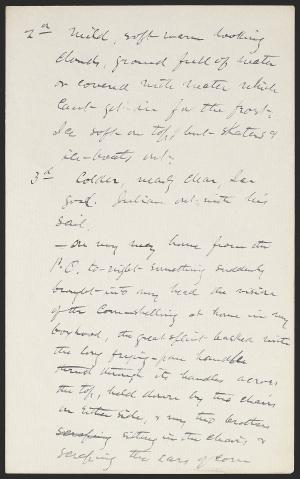 2d Mild, soft warm looking
clouds, ground full of water
or covered with water which
can't get in for the frost,
Ice soft on top, but skaters &
ice-boats out.
3d Colder, nearly clear, Ice
good. Julian out with his
sail.
— On my way home from the
P.O. to-night something suddenly
brought into my head the vision
of the Corn-shelling at home in my
boyhood, the great splint basket with
the long frying-pan handle
thrust through its handles across
the top, held down by two chairs
on either side, & my two brothers
scraping sitting in the chairs, &
scraping the ears of corn